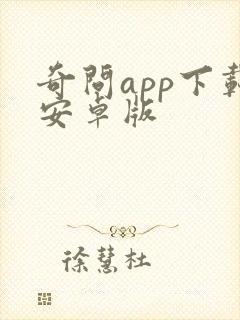 奇問app下載
安卓版
徐慧杜